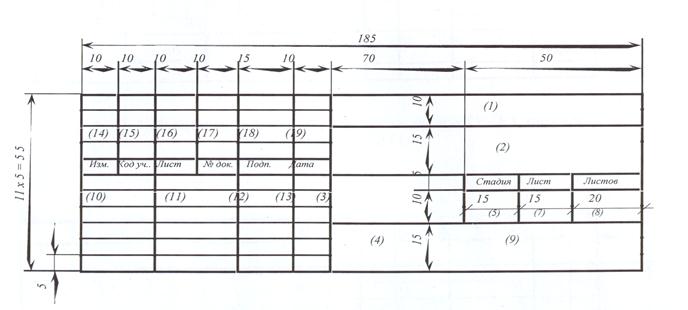 185
10 10 10 10 15 10 70 50
10 (1)
(14) (15) (16) (17) (18) (19)
15 (2)
Изм. Код уч.. Лист № док. Подп. Дата
5 Стадия Лист Листов
(10) (11) (12) (13) (3) 10 15 15 20
(5) (7) (8)
(4) 15 (9)
11х5=55
5